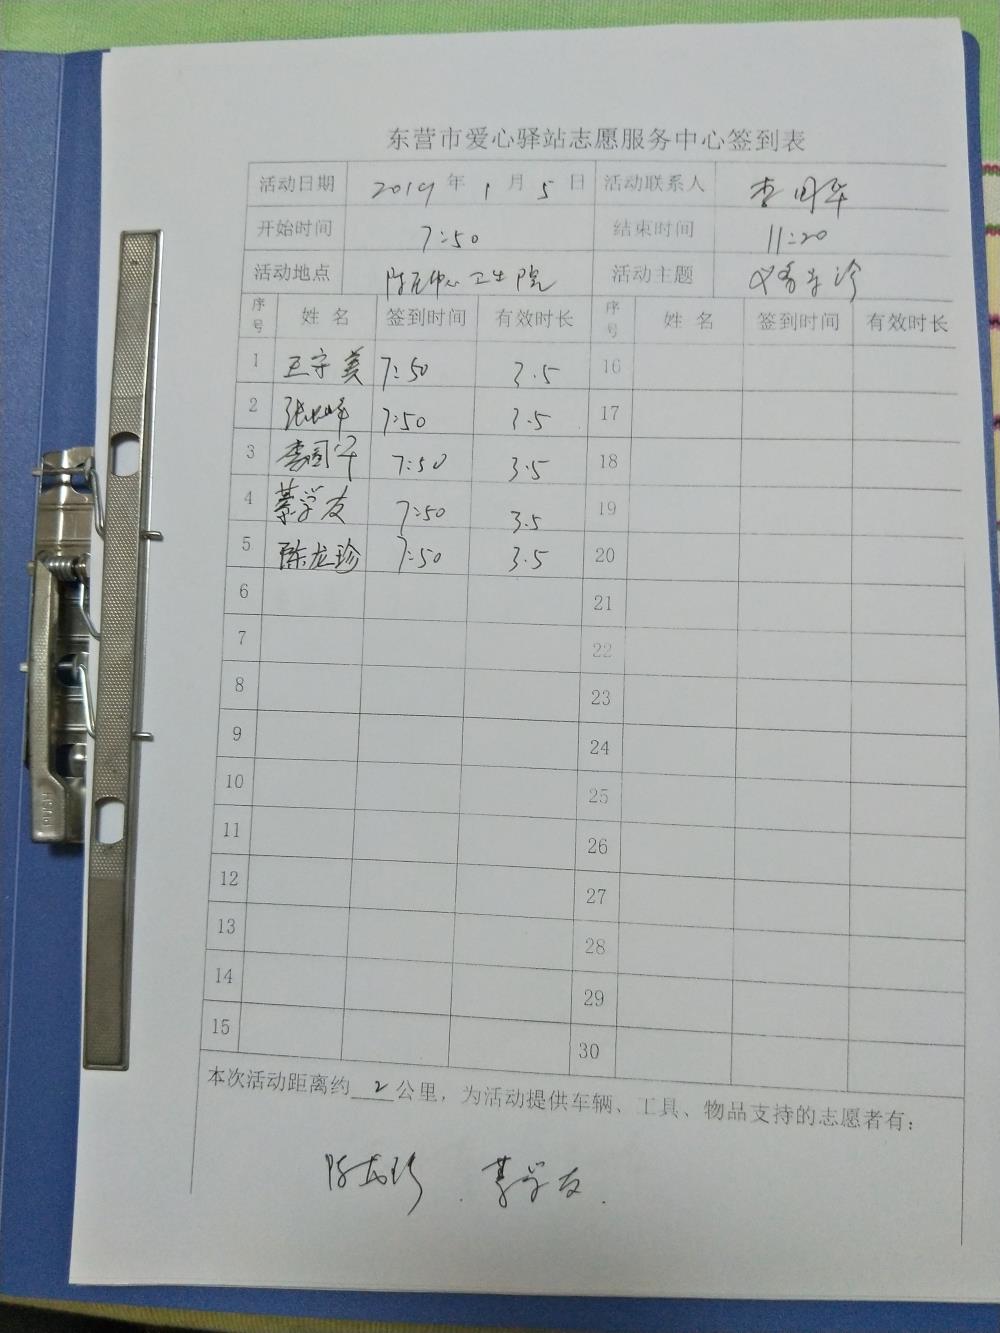 东营市爱心驿站志愿服务中心签到表
活动日期 2019 年 1 月 5 日 活动联系人 李国军
开始时间 7:50 结束时间 11:20
活动地点 中心卫生院 活动主题 义务
序号 姓名 签到时间 有效时长 序号 姓名 签到时间 有效时长
1 王守美 7:50 3.5 16
2 7:50 3.5 17
3 李国军 7:50 3.5 18
4 綦学友 7:50 3.5 19
5 陈龙珍 7:50 3.5 20
6 21
7 22
8 23
9 24
10 25
11 26
12 27
13 28
14 29
15 30
本次活动距离约 2 公里，为活动提供车辆、工具、物品支持的志愿者有：
陈龙珍 . 綦学友 .